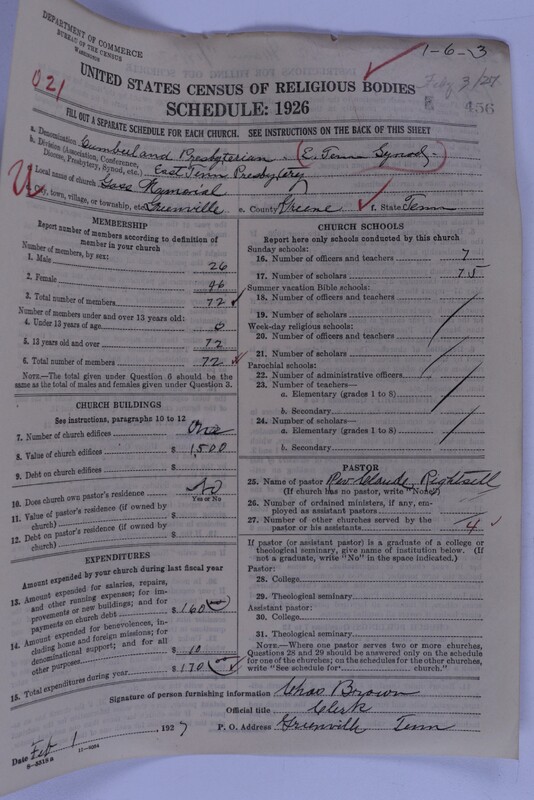 DEPARTMENT OF COMMERCE
BUREAU OF THE CENSUS
WASHINGTON
1-6-3
021
UNITED STATES CENSUS OF RELIGIOUS BODIES
SCHEDULE: 1926
Feby 3/27
456
FILL OUT A SEPARATE SCHEDULE FOR EACH CHURCH. SEE INSTRUCTIONS ON THE BACK OF THIS SHEET
a. Denomination Cumberland Presbyterian (E. Tenn Synod)
b. Division (Association, Conference, Diocese, Presbytery, Synod, etc.) East Tenn Presbytery
Local name of church Goss Memorial
City, town, village, or township, etc. Greenville e. County Greene f. State Tenn
MEMBERSHIP
Report number of members according to definition of member in your church
Number of members, by sex:
1. Male 26
2. Female 46
3. Total number of members 72
Number of members under and over 13 years old:
4. Under 13 years of age 0
5. 13 years old and over 72
6. Total number of members 72
NOTE.—The total given under Question 6 should be the same as the total of males and females given under Question 3.
CHURCH BUILDINGS
See instructions, paragraphs 10 to 12
7. Number of church edifices One
8. Value of church edifices $ 1500
9. Debt on church edifices $
10. Does church own pastor's residence No
Yes or No
11. Value of pastor's residence (if owned by church) $
12. Debt on pastor's residence (if owned by church) $
EXPENDITURES
Amount expended by your church during last fiscal year
13. Amount expended for salaries, repairs, and other running expenses; for improvements or new buildings; and for payments on church debt $ 160
14. Amount expended for benevolences, including home and foreign missions; for denominational support; and for all other purposes $ 10
15. Total expenditures during year $ 170
CHURCH SCHOOLS
Report here only schools conducted by this church
Sunday schools:
16. Number of officers and teachers 7
17. Number of scholars 75
Summer vacation Bible schools:
18. Number of officers and teachers
19. Number of scholars
Week-day religious schools:
20. Number of officers and teachers
21. Number of scholars
Parochial schools:
22. Number of administrative officers
23. Number of teachers—
a. Elementary (grades 1 to 8)
b. Secondary
24. Number of scholars—
a. Elementary (grades 1 to 8)
b. Secondary
PASTOR
25. Name of pastor Rev Claude Rightsell
(If church has no pastor, write "None")
26. Number of ordained ministers, if any, employed as assistant pastors
27. Number of other churches served by the pastor or his assistants 4
If pastor (or assistant pastor) is a graduate of a college or theological seminary, give name of institution below. (If not a graduate, write "No" in the space indicated.)
Pastor:
28. College
29. Theological seminary
Assistant pastor:
30. College
31. Theological seminary
NOTE.—Where one pastor serves two or more churches, Questions 28 and 29 should be answered only on the schedule for one of the churches; on the schedules for the other churches, write "See schedule for church."
Signature of person furnishing information Chas Brown
Official title Clerk
Date Feb 1 1927 P. O. Address Greenville Tenn
8-5518a 11-9064